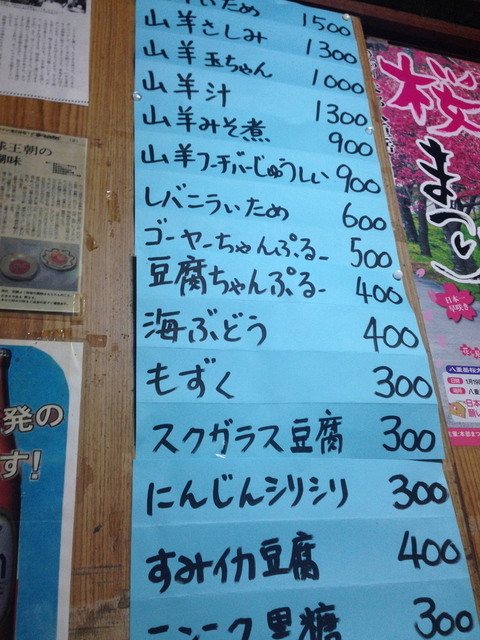 いため 1500
山羊さしみ 1300
山羊玉ちゃん 1000
山羊汁 1300
山羊みそ煮 900
山羊フーチバーじゅうしい 900
レバニラいため 600
ゴーヤーちゃんぷるー 500
豆腐ちゃんぷるー 400
海ぶどう 400
もずく 300
スクガラス豆腐 300
にんじんシリシリ 300
すみイカ豆腐 400
ニンニク黒糖 300
王朝の
味
発の
す!
桜まつり
日本一
早咲き